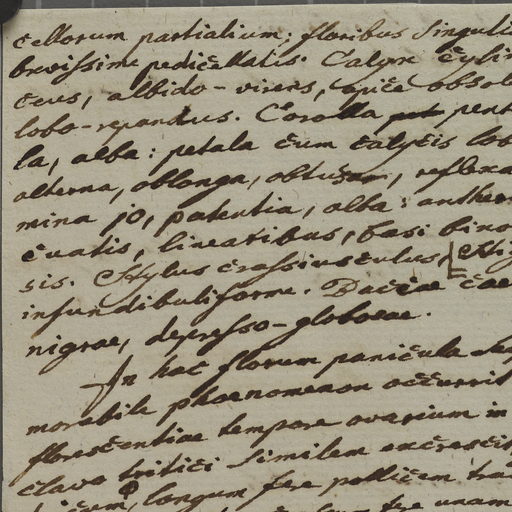 cellorum partialium; floribus singulis
brevissime pedicellatis. Calyx cylin
ceus, albido-virens, apice obsole
lobo-repandus. Corolla pent
la, alba: petala cum calycis lob
alterna, oblonga, obtusa, reflexa
mina 10, patentia, alta: anther
cuatis, linearibus, basi bino
sis. Stylus crassiusculus, Stig
infundibuliforme. Baccae cae
nigrae, depresso-globosae.
In hac florum panicula sae
morabile phaenomenon occurrit
florescentiae tempore ovarium in
clavo tritici similem excrescit
longum fere pollicem tra
fere unam